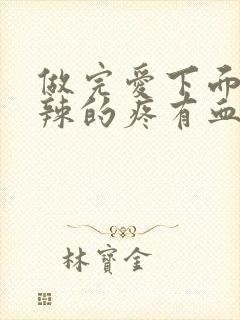 做完爱下而
辣的疼有血
林寶金